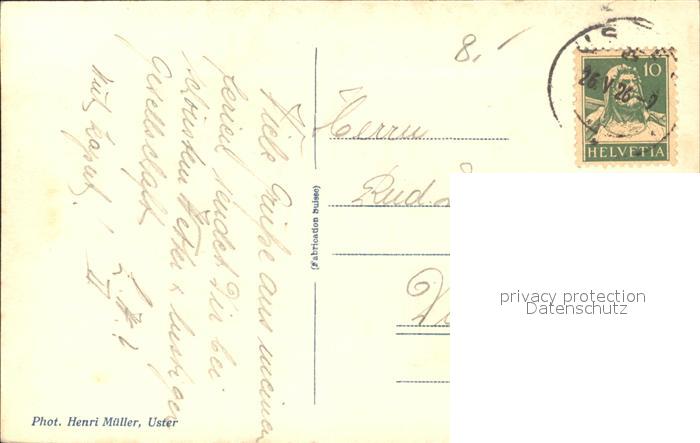 Viele Grüße aus meinen
Ferien sendet Dir bei
schönstem Wetter & lustiger
Gesellschaft
Herrn
Rud.
8.
26.V.26
10
HELVETIA
(Fabrication Suisse)
Phot. Henri Müller, Uster
privacy protection
Datenschutz